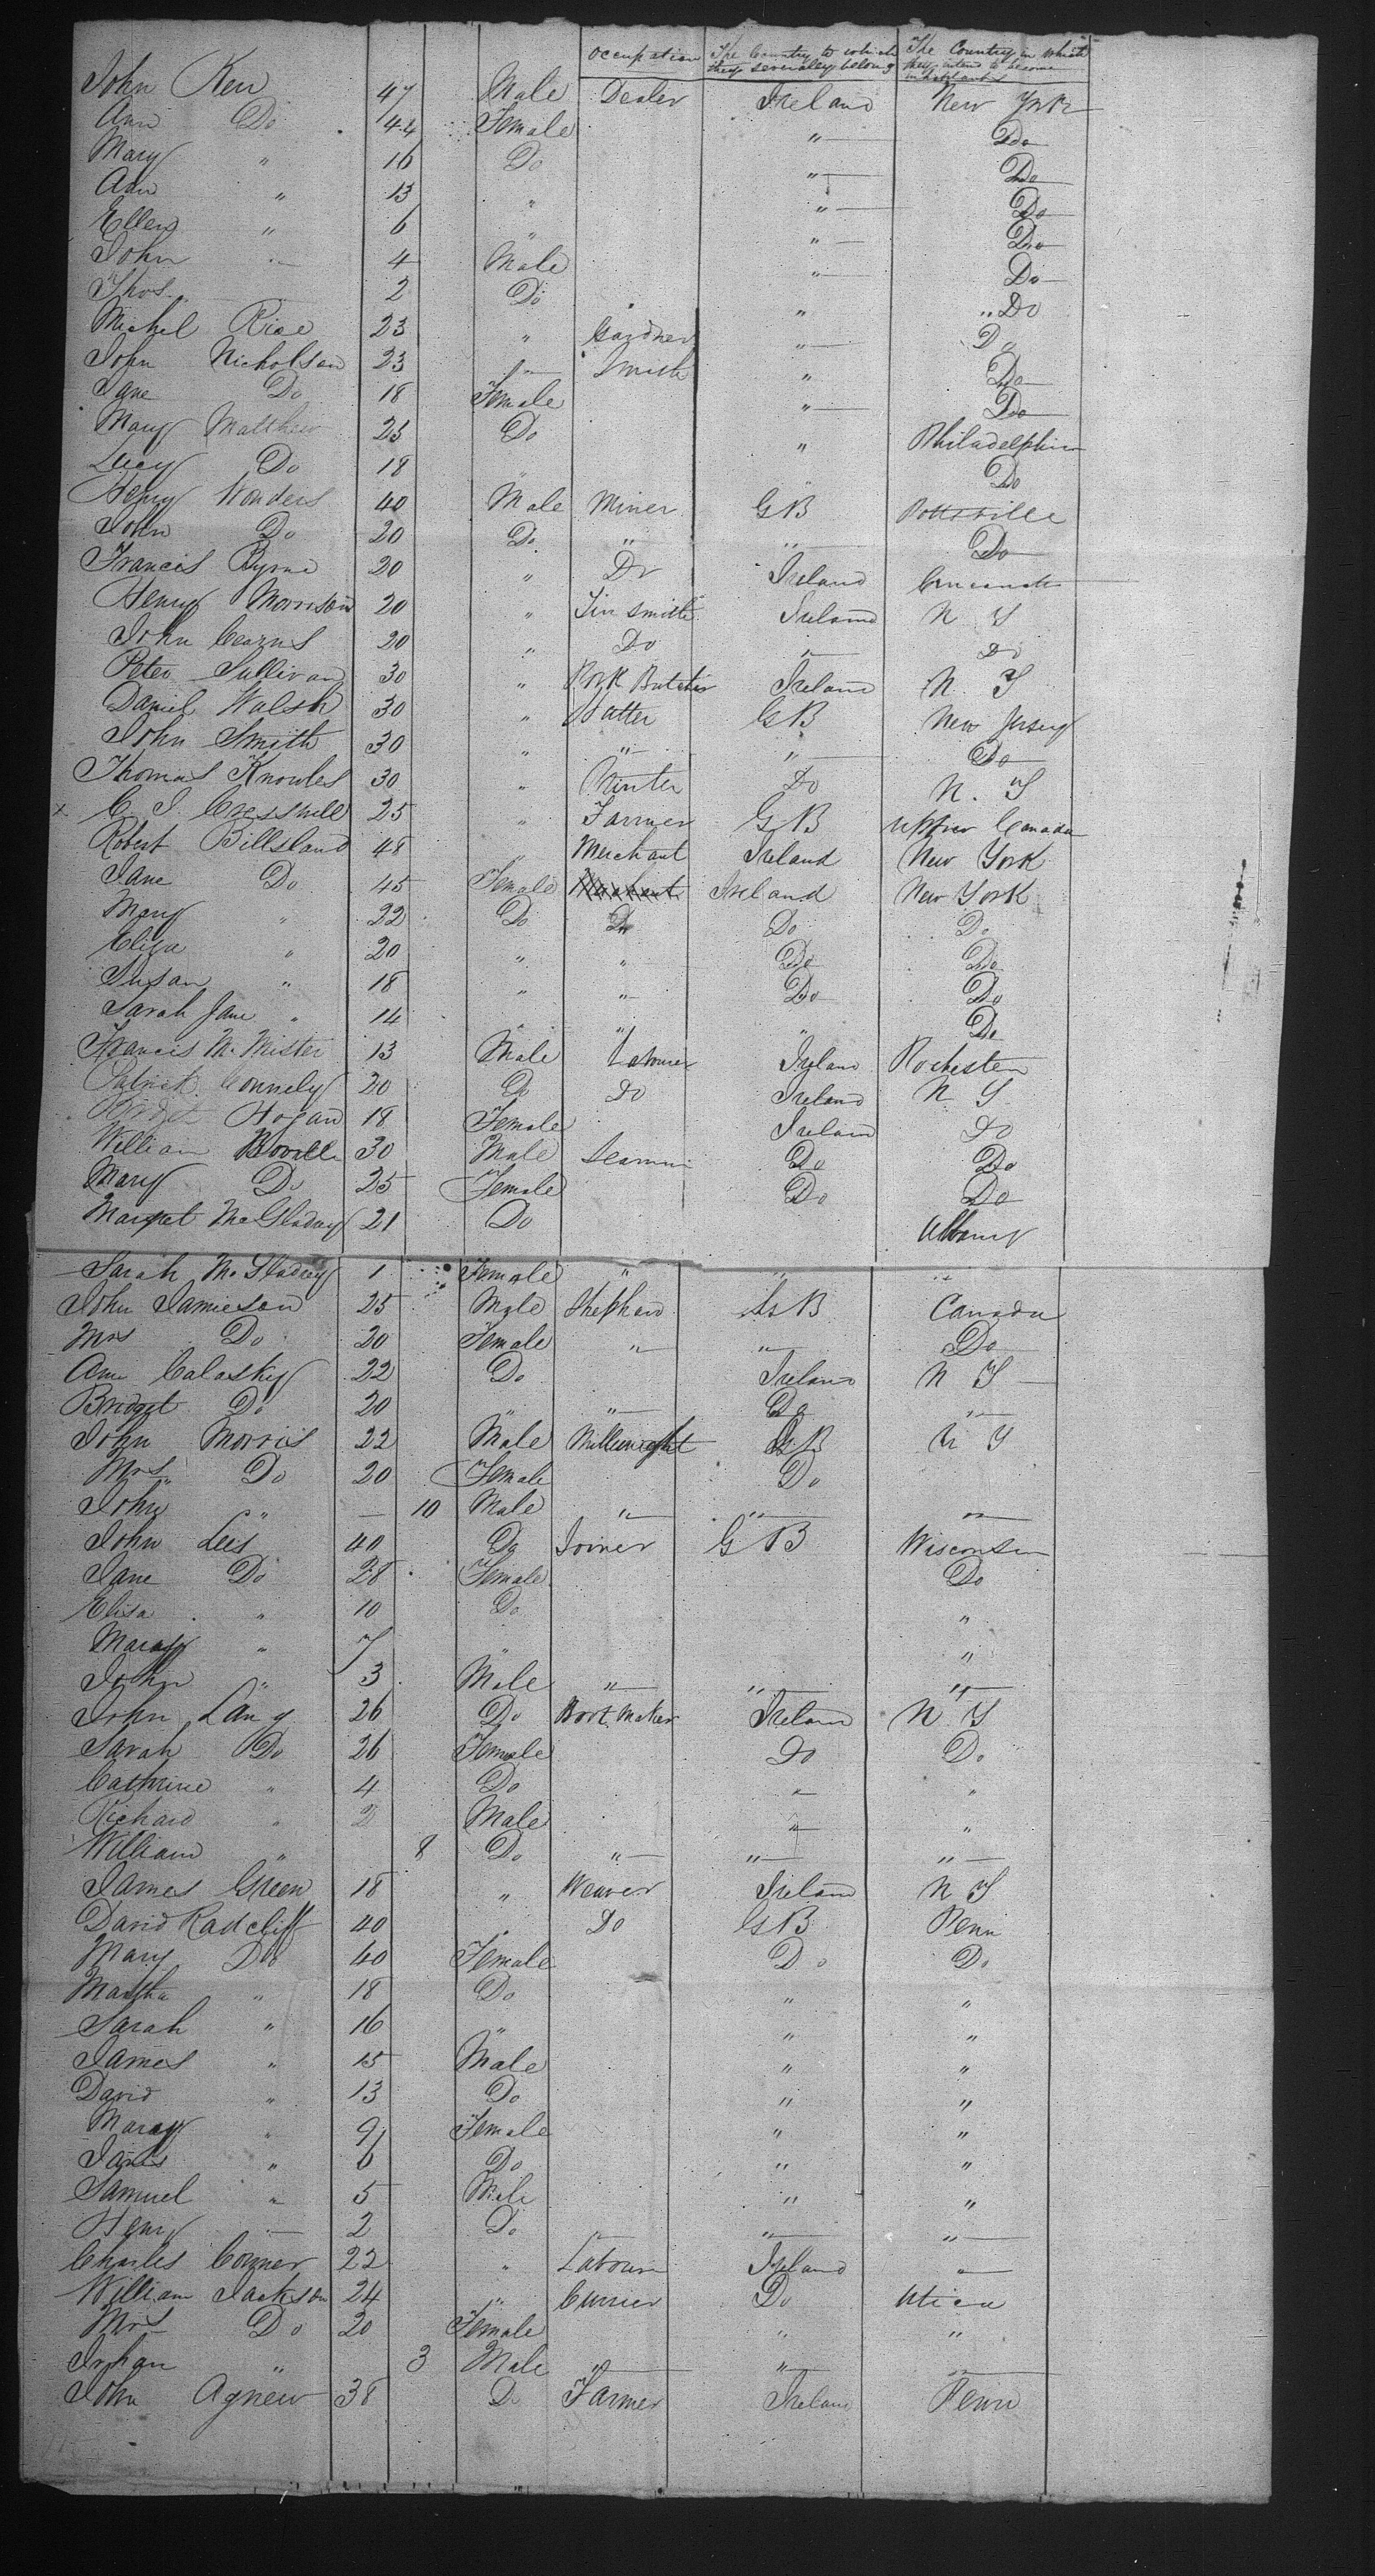 occupation The Country to which they severally belong The Country in which they intend to become inhabitants
John Kerr 47 Male Dealer Ireland New York
Ann Do 44 Female " Do
Mary " 16 Do " Do
Ann " 13 " " Do
Ellen " 6 " " Do
John 4 Male " Do
Thos 2 Do " Do
Michel Rice 23 " Gardner " Do
John Nicholson 23 " Smith " Do
Jane Do 18 Female " Do
Mary Matthew 25 Do " Philadelphia
Lucy Do 18 " " Do
Henry Wonders 40 Male Miner GB Pottsville
John Do 20 Do " " Do
Francis Byrne 20 " Do Ireland
Henry Morrison 20 " Tin smith Ireland N Y
John Cearns 20 " Do " Do
Peter Sullivan 30 " Pork Butcher Ireland N. Y
Daniel Walsh 30 " Hatter GB New Jersey
John Smith 30 " " " Do
Thomas Knowles 30 " Do N. Y
x C. J. Cresswell 25 " Farmer GB Upper Canada
Robert Billsland 48 " Merchant Ireland New York
Jane Do 45 Female Ireland New York
Mary " 22 Do Do Do Do
Eliza " 20 " " Do Do
Susan " 18 " " Do Do
Sarah Jane " 14 " " " Do
Francis McMister 13 Male Labourer Ireland Rochester
Patrick Connely 20 Do Do Ireland N Y
Hogan 18 Female Ireland Do
William Boville 30 Male Do Do
Mary Do 25 Female Do Do
Margret McGladry 21 Do Albany
Sarah McGladrey 1 Female " " "
John Jamieson 25 Male Shephard GB Canada
Mrs Do 20 Female " " Do
Ann Calasky 22 Do Ireland N Y
Bridget Do 20 " " Do "
John Morris 22 Male Millwright GB N Y
Mrs Do 20 Female Do
John " — 10 Male " " "
John Lees 40 Do Joiner GB Wisconsin
Jane Do 28 Female Do
Elisa " 10 Do "
Mary " 7 " "
John " 3 Male " " "
John Lang 26 Do Boot Maker Ireland N. Y
Sarah Do 26 Female Do Do
Cathrine " 4 Do " "
Richard " 2 Male " "
William " 8 Do " " "
James Green 18 " Weaver Ireland N Y
David Radcliff 40 " Do GB Penn
Mary Do 40 Female Do Do
Martha " 18 Do " "
Sarah " 16 " " "
James " 15 Male " "
David " 13 Do " "
Mary " 9 Female " "
Janes " 6 Do " "
Samuel " 5 Male " "
Henry 2 Do " "
Charles Conner 22 " Labourer Ireland "
William Jackson 24 " Currier Do Utica
Mrs Do 20 Female " "
Infan " 3 Male " " "
John Agnew 38 Do Farmer Ireland Penn